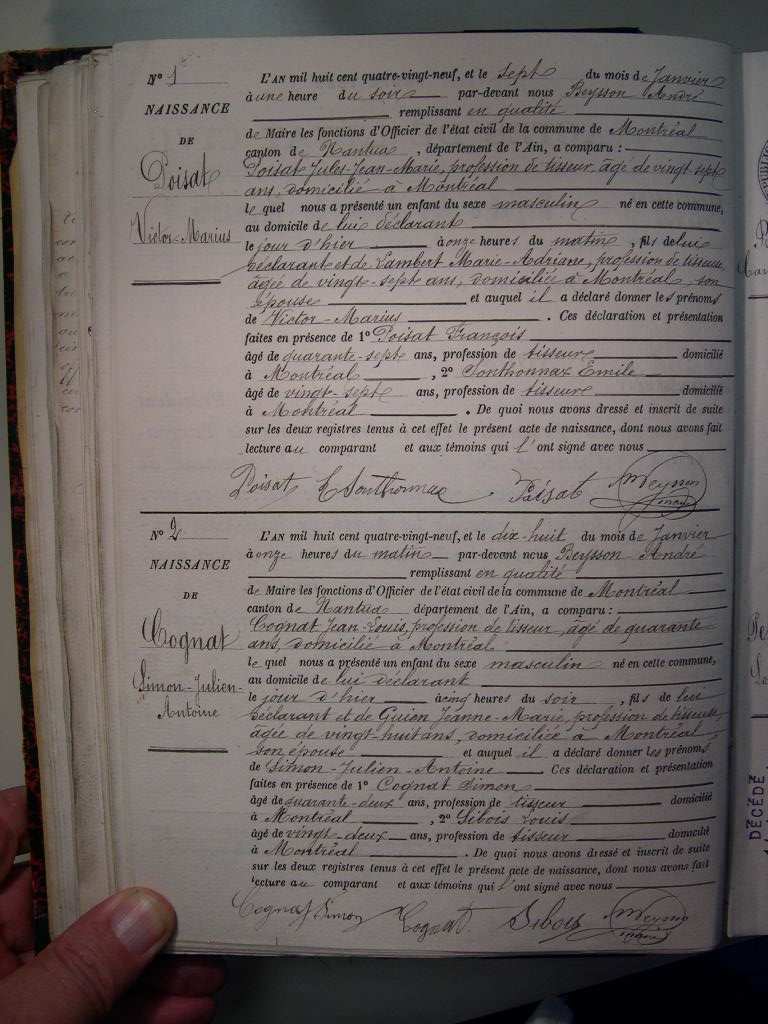 N° 1
NAISSANCE
DE
Poisat
Victor-Marius
L'AN mil huit cent quatre-vingt-neuf, et le sept du mois de Janvier
à une heure du soir par-devant nous Beysson André
remplissant en qualité
de Maire les fonctions d'Officier de l'état civil de la commune de Montréal
canton de Nantua, département de l'Ain, a comparu :
Poisat Jules Jean-Marie, profession de tisseur, âgé de vingt-sept
ans, domicilié à Montréal
le quel nous a présenté un enfant du sexe masculin né en cette commune,
au domicile de lui déclarant
le jour d'hier à onze heures du matin, fils de lui
déclarant et de Lambert Marie-Adriane, profession de tisseuse,
âgée de vingt-sept ans, domiciliée à Montréal, son
épouse et auquel il a déclaré donner les prénoms
de Victor-Marius. Ces déclaration et présentation
faites en présence de 1° Poisat François
âgé de quarante-sept ans, profession de tisseur domicilié
à Montréal, 2° Sonthonnax Emile
âgé de vingt-sept ans, profession de tisseur domicilié
à Montréal. De quoi nous avons dressé et inscrit de suite
sur les deux registres tenus à cet effet le présent acte de naissance, dont nous avons fait
lecture au comparant et aux témoins qui l'ont signé avec nous
Poisat E Sonthonnax Poisat A Beysson
maire
N° 2
NAISSANCE
DE
Cognat
Simon-Julien-
Antoine
L'AN mil huit cent quatre-vingt-neuf, et le dix-huit du mois de Janvier
à onze heures du matin par-devant nous Beysson André
remplissant en qualité
de Maire les fonctions d'Officier de l'état civil de la commune de Montréal
canton de Nantua département de l'Ain, a comparu :
Cognat Jean-Louis, profession de tisseur, âgé de quarante
ans, domicilié à Montréal
le quel nous a présenté un enfant du sexe masculin né en cette commune,
au domicile de lui déclarant
le jour d'hier à cinq heures du soir, fils de lui
déclarant et de Guien Jeanne-Marie, profession de tisseuse,
âgée de vingt-huit ans, domiciliée à Montréal,
son épouse et auquel il a déclaré donner les prénoms
de Simon-Julien-Antoine. Ces déclaration et présentation
faites en présence de 1° Cognat Simon
âgé de quarante-deux ans, profession de tisseur domicilié
à Montréal, 2° Sibois Louis
âgé de vingt-deux ans, profession de tisseur domicilié
à Montréal. De quoi nous avons dressé et inscrit de suite
sur les deux registres tenus à cet effet le présent acte de naissance, dont nous avons fait
lecture au comparant et aux témoins qui l'ont signé avec nous
Cognat Simon Cognat Sibois A Beysson
maire
DÉCÉDÉ